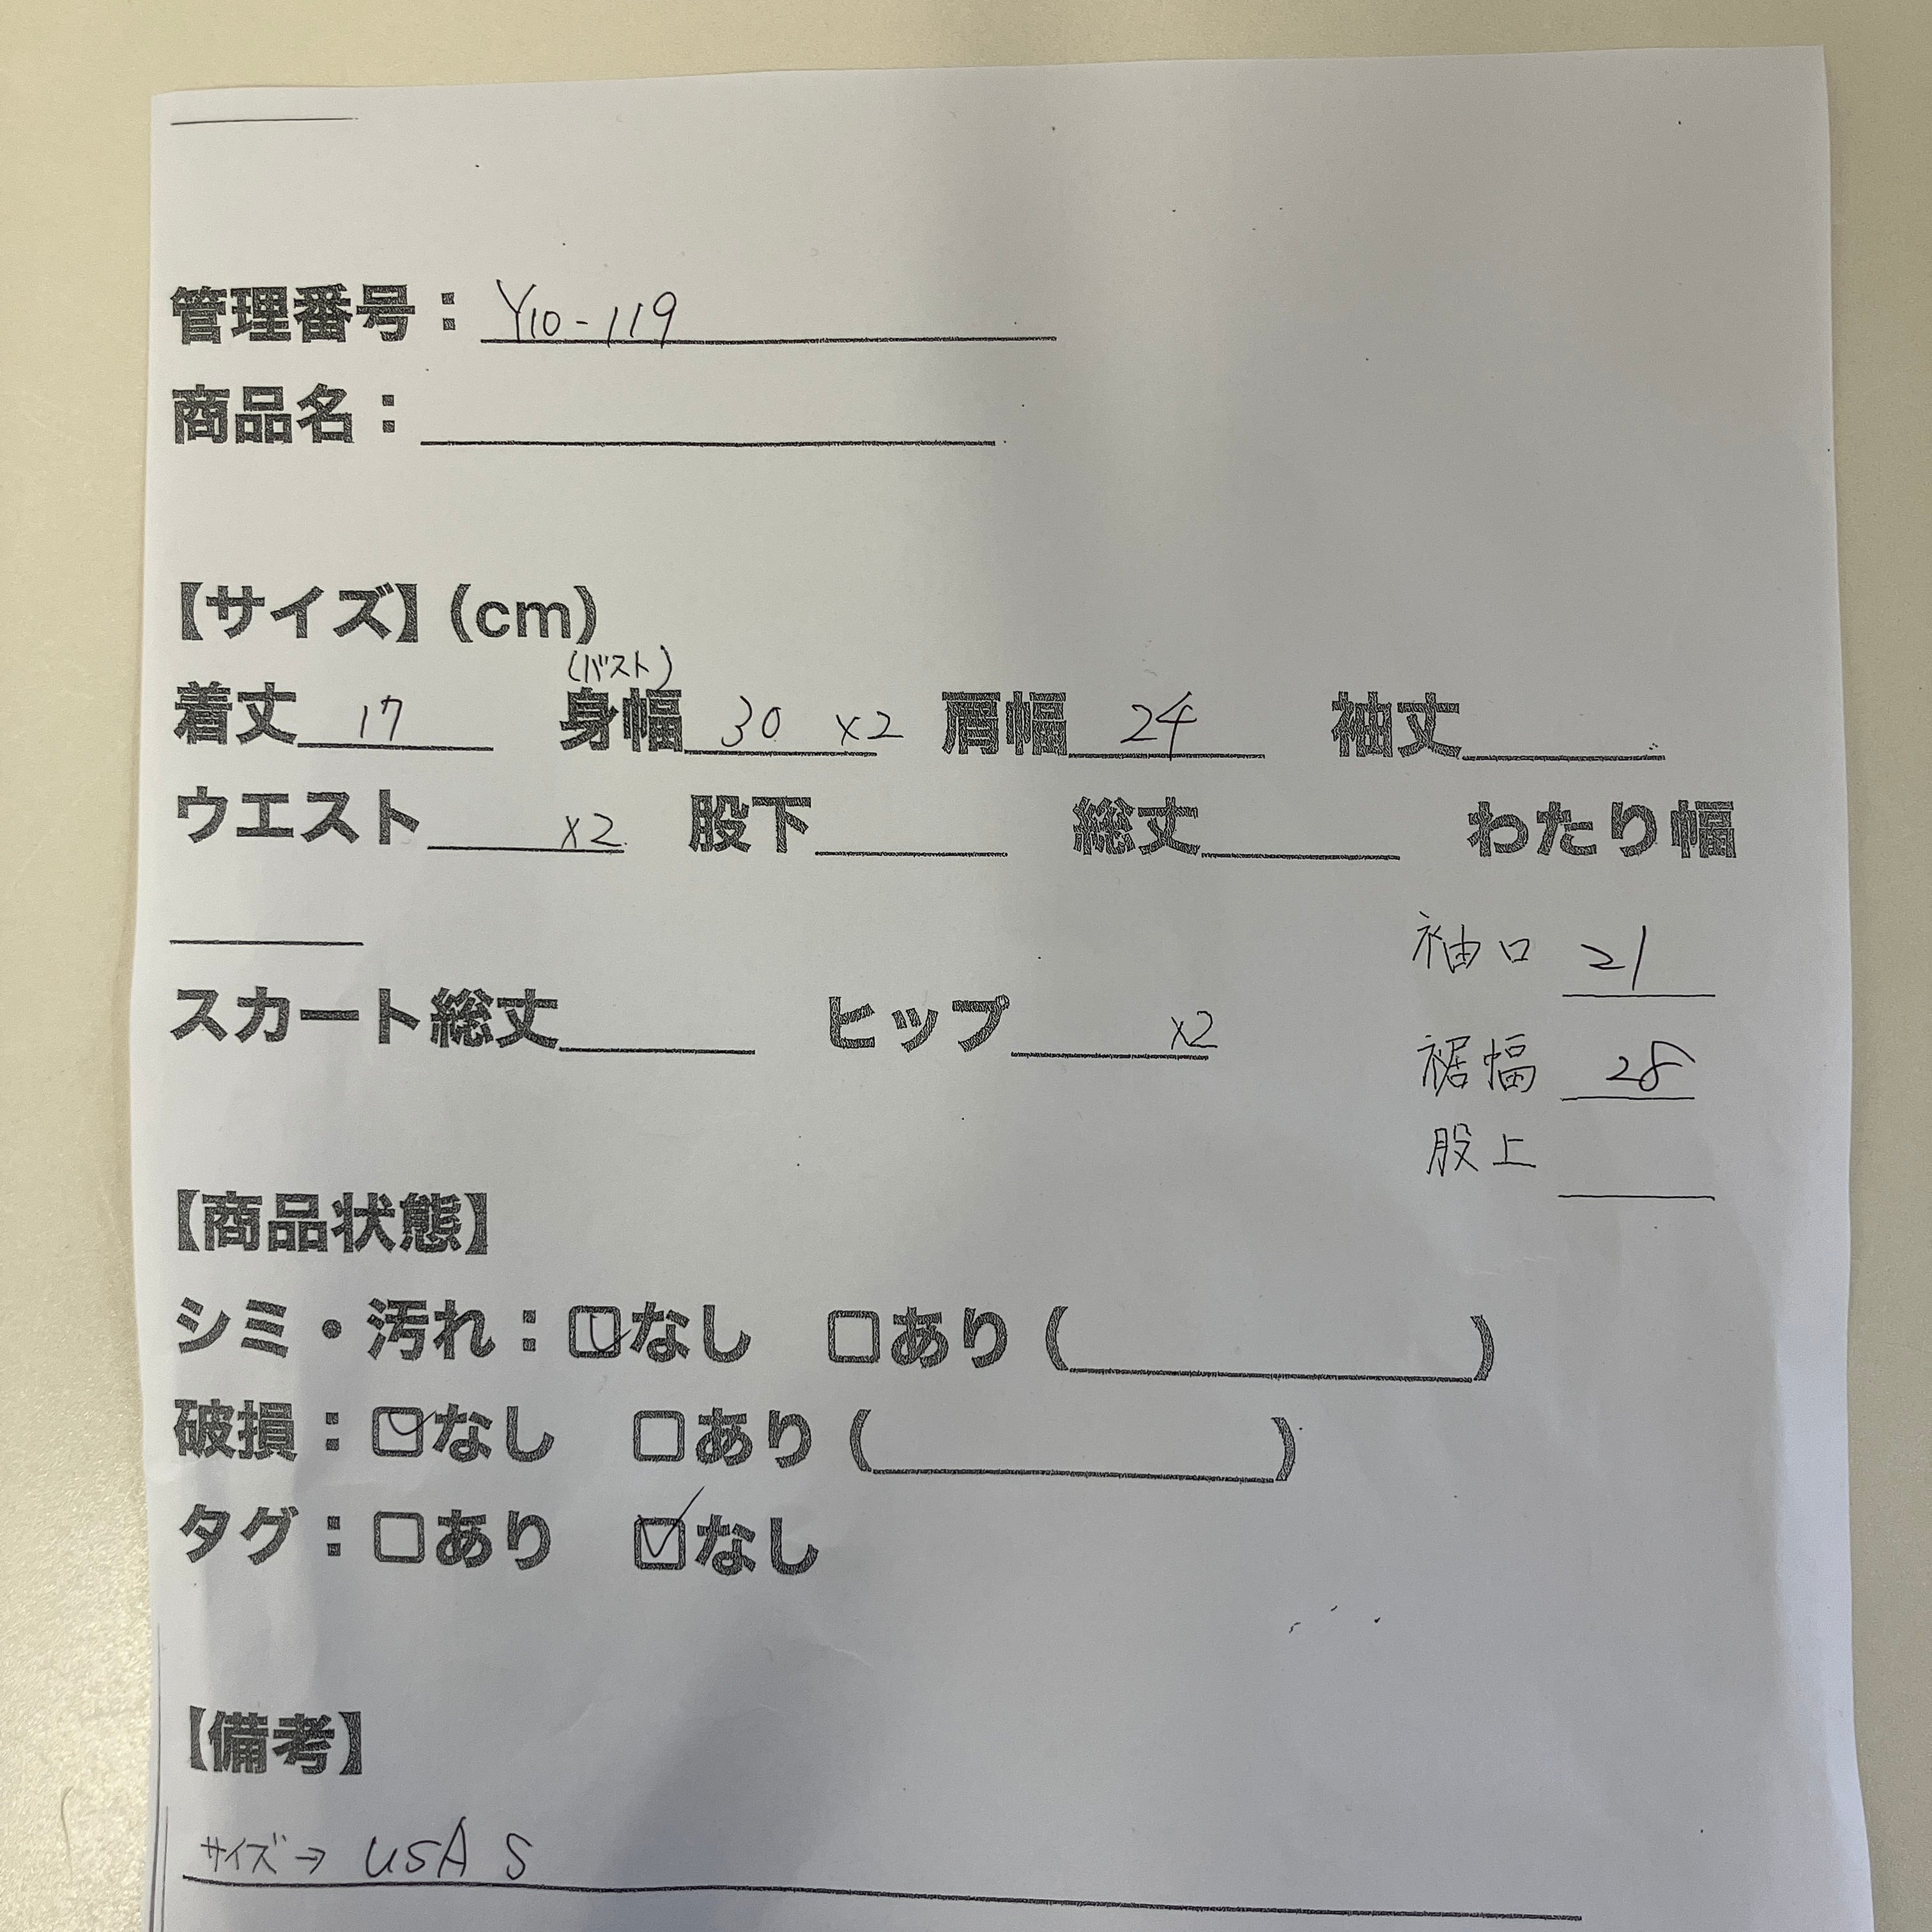 管理番号：Y10-119
商品名：
【サイズ】（cm）
（バスト）
着丈 17 身幅 30 x2 肩幅 24 袖丈
ウエスト x2 股下 総丈 わたり幅
袖口 21
スカート総丈 ヒップ x2
裾幅 28
股上
【商品状態】
シミ・汚れ：☑なし □あり（ ）
破損：☑なし □あり（ ）
タグ：□あり ☑なし
【備考】
サイズ→ USA S